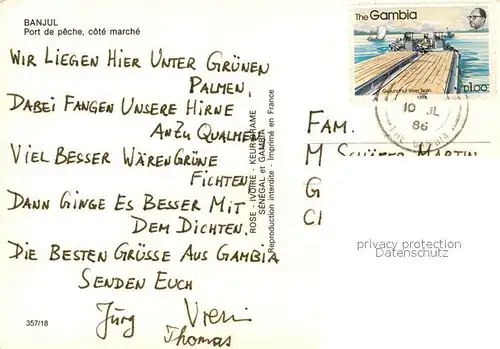 BANJUL
Port de pêche, côté marché
WIR LIEGEN HIER UNTER GRÜNEN
PALMEN,
DABEI FANGEN UNSERE HIRNE
AN ZU QUALMEN
VIEL BESSER WÄREN GRÜNE
FICHTEN,
DANN GINGE ES BESSER MIT
DEM DICHTEN.
DIE BESTEN GRÜSSE AUS GAMBIA
SENDEN EUCH
Jürg Vreni
Thomas
357/18
ROSE - IVOIRE - KEUR
SÉNÉGAL et GAMBIA
Reproduction interdite - Imprimé en France
The Gambia
D1.00
10 JL
86
THE GAMBIA
FAM.
M SCHÄFER MARTIN
G
CI
privacy protection
Datenschutz